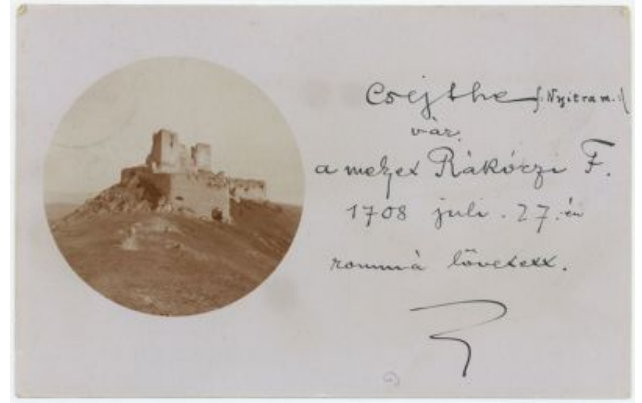 Csejthe /:Nyitra m.:/
vár,
a melyet Rákóczi F.
1708 juli. 27.-én
rommá lövetett.